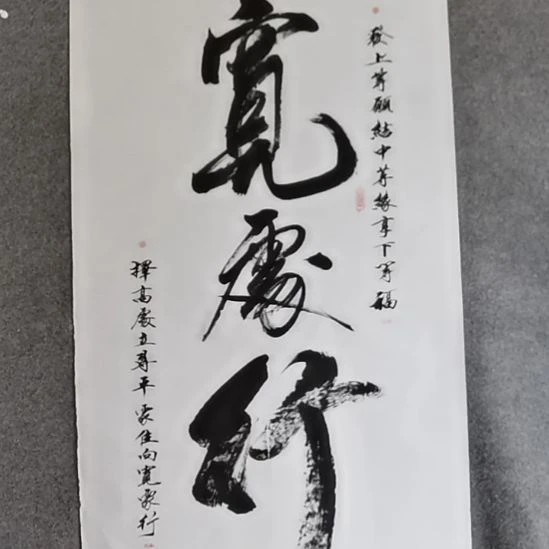 發上等願結中等緣享下等福
寬處行
擇高處立尋平處住向寬處行